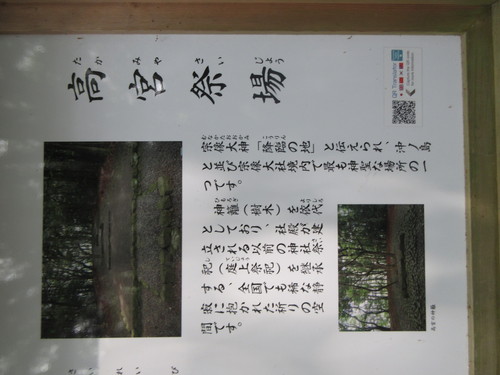 高宮祭場
たかみやさいじょう
宗像大神「降臨の地」と伝えられ、沖ノ島
と並び宗像大社境内で最も神聖な場所の一
つです。
神籬（樹木）を依代
としており、社殿が建
立される以前の神社祭
祀（庭上祭祀）を継承
する、全国でも稀な静
寂に抱かれた祈りの空
間です。
高宮の神籬
QR Translator
Capture the QR code
for more information.
さいれいび